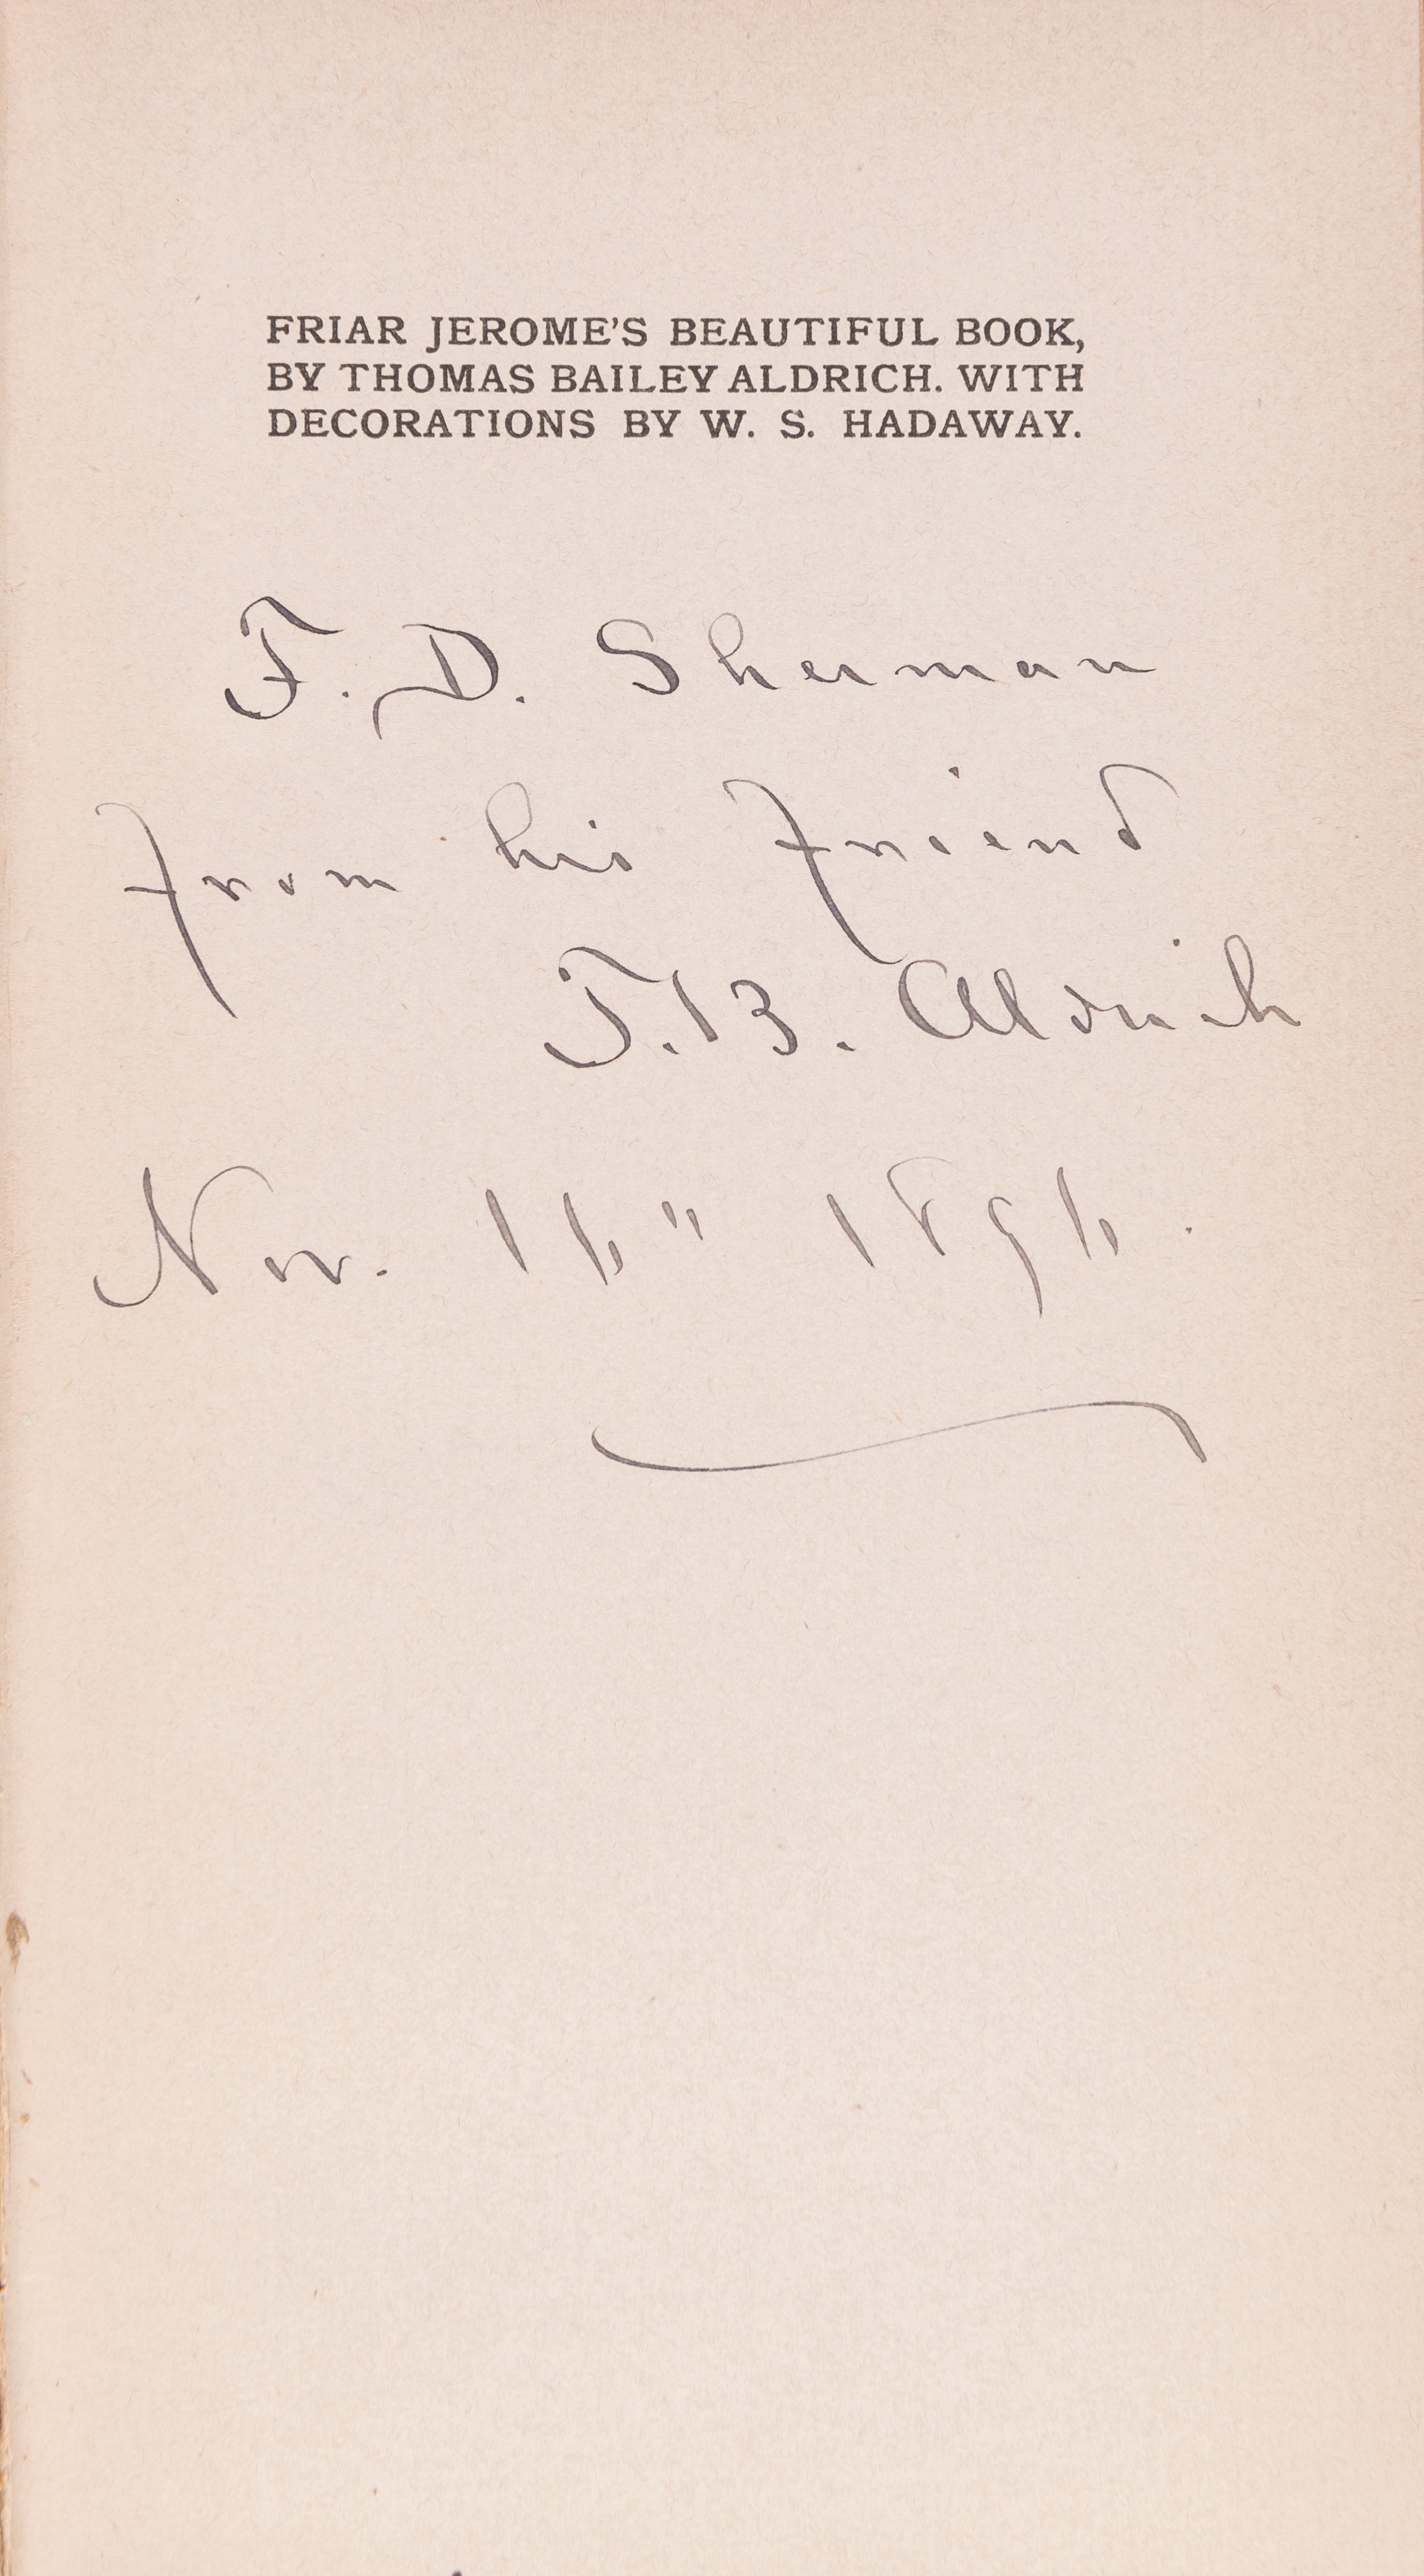 FRIAR JEROME'S BEAUTIFUL BOOK,
BY THOMAS BAILEY ALDRICH. WITH
DECORATIONS BY W. S. HADAWAY.
F. D. Sherman
from his friend
T. B. Aldrich
Nov. 16" 1896.